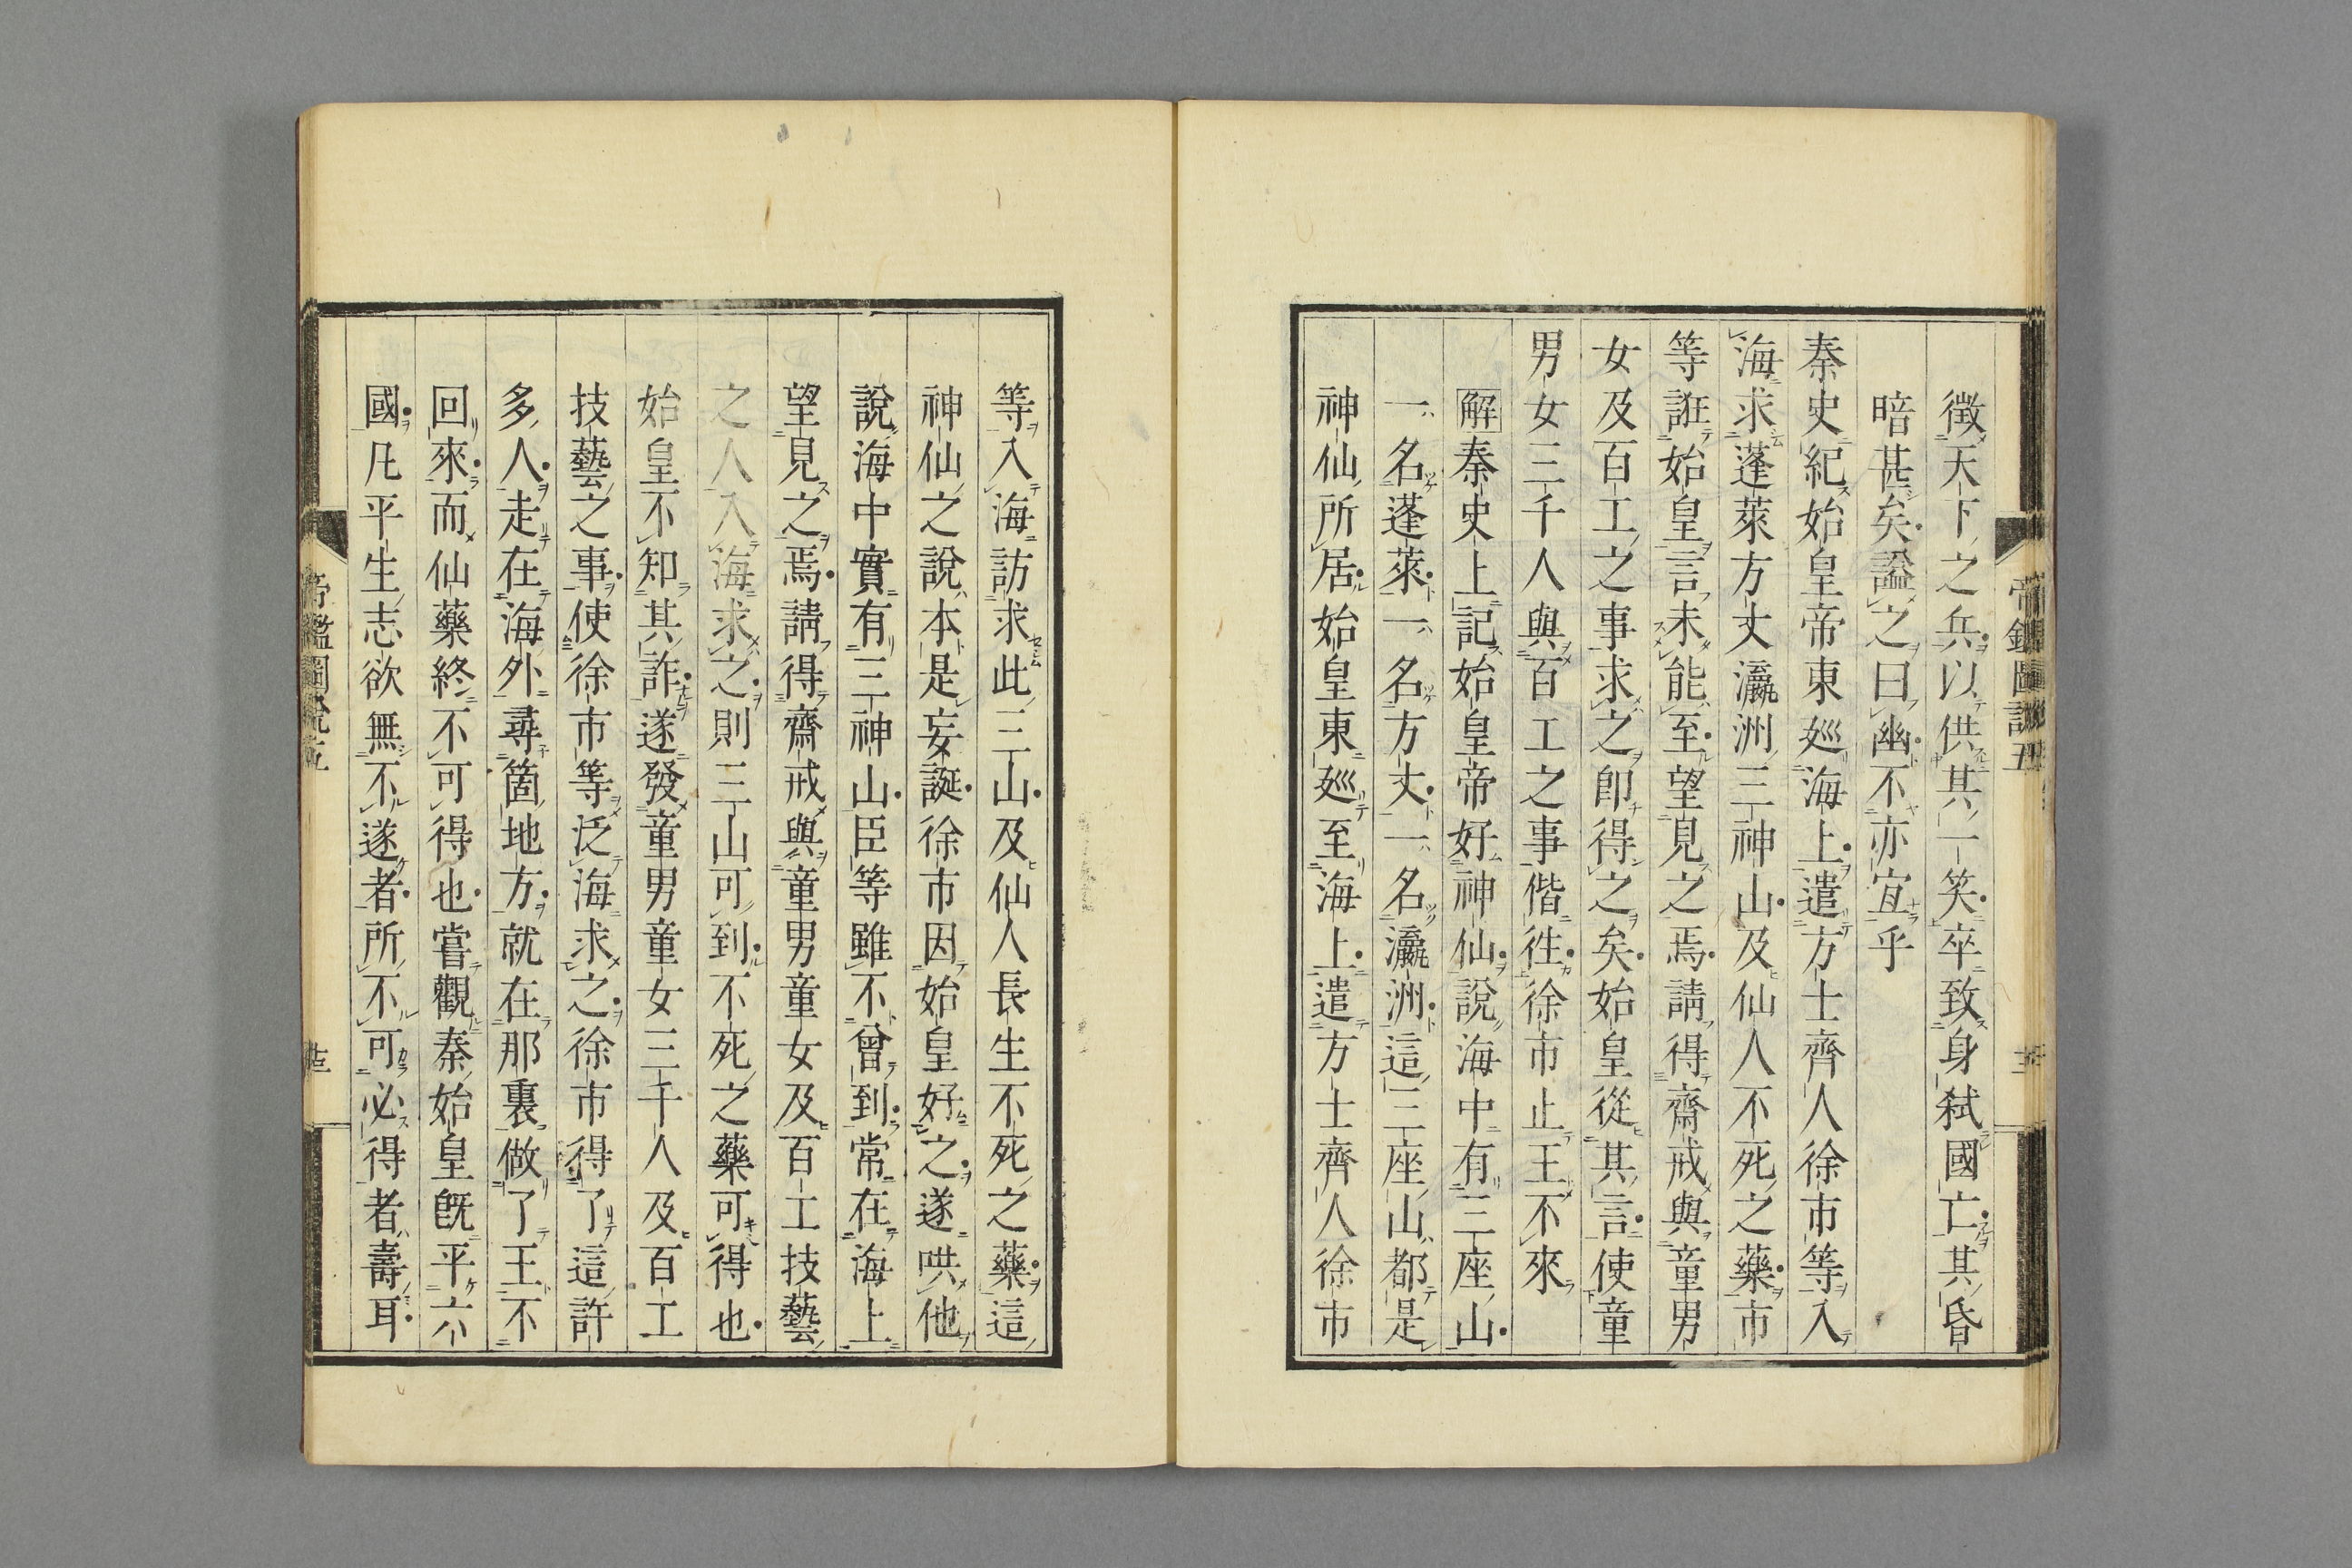 徴天下之兵以供其一笑卒致身弑國亡其昏
暗甚矣諡之曰幽不亦宜乎
秦史紀始皇帝東廵海上遣方士齊人徐市等入
海求蓬萊方丈瀛洲三神山及仙人不死之藥市
等誑始皇言未能至望見之焉請得齋戒與童男
女及百工之事求之即得之矣始皇從其言使童
男女三千人與百工之事偕徃徐市止王不來
解秦史上記始皇帝好神仙說海中有三座山
一名蓬萊一名方丈一名瀛洲這三座山都是
神仙所居始皇東廵至海上遣方士齊人徐市
等入海訪求此三山及仙人長生不死之藥這
神仙之說本是妄誕徐市因始皇好之遂哄他
說海中實有三神山臣等雖不曾到常在海上
望見之焉請得齋戒與童男童女及百工技藝
之人入海求之則三山可到不死之藥可得也
始皇不知其詐遂發童男童女三千人及百工
技藝之事使徐市等泛海求之徐市得了這許
多人走在海外尋箇地方就在那裏做了王不
回來而仙藥終不可得也嘗觀秦始皇旣平六
國凡平生志欲無不遂者所不可必得者壽耳
帝鑑圖說五